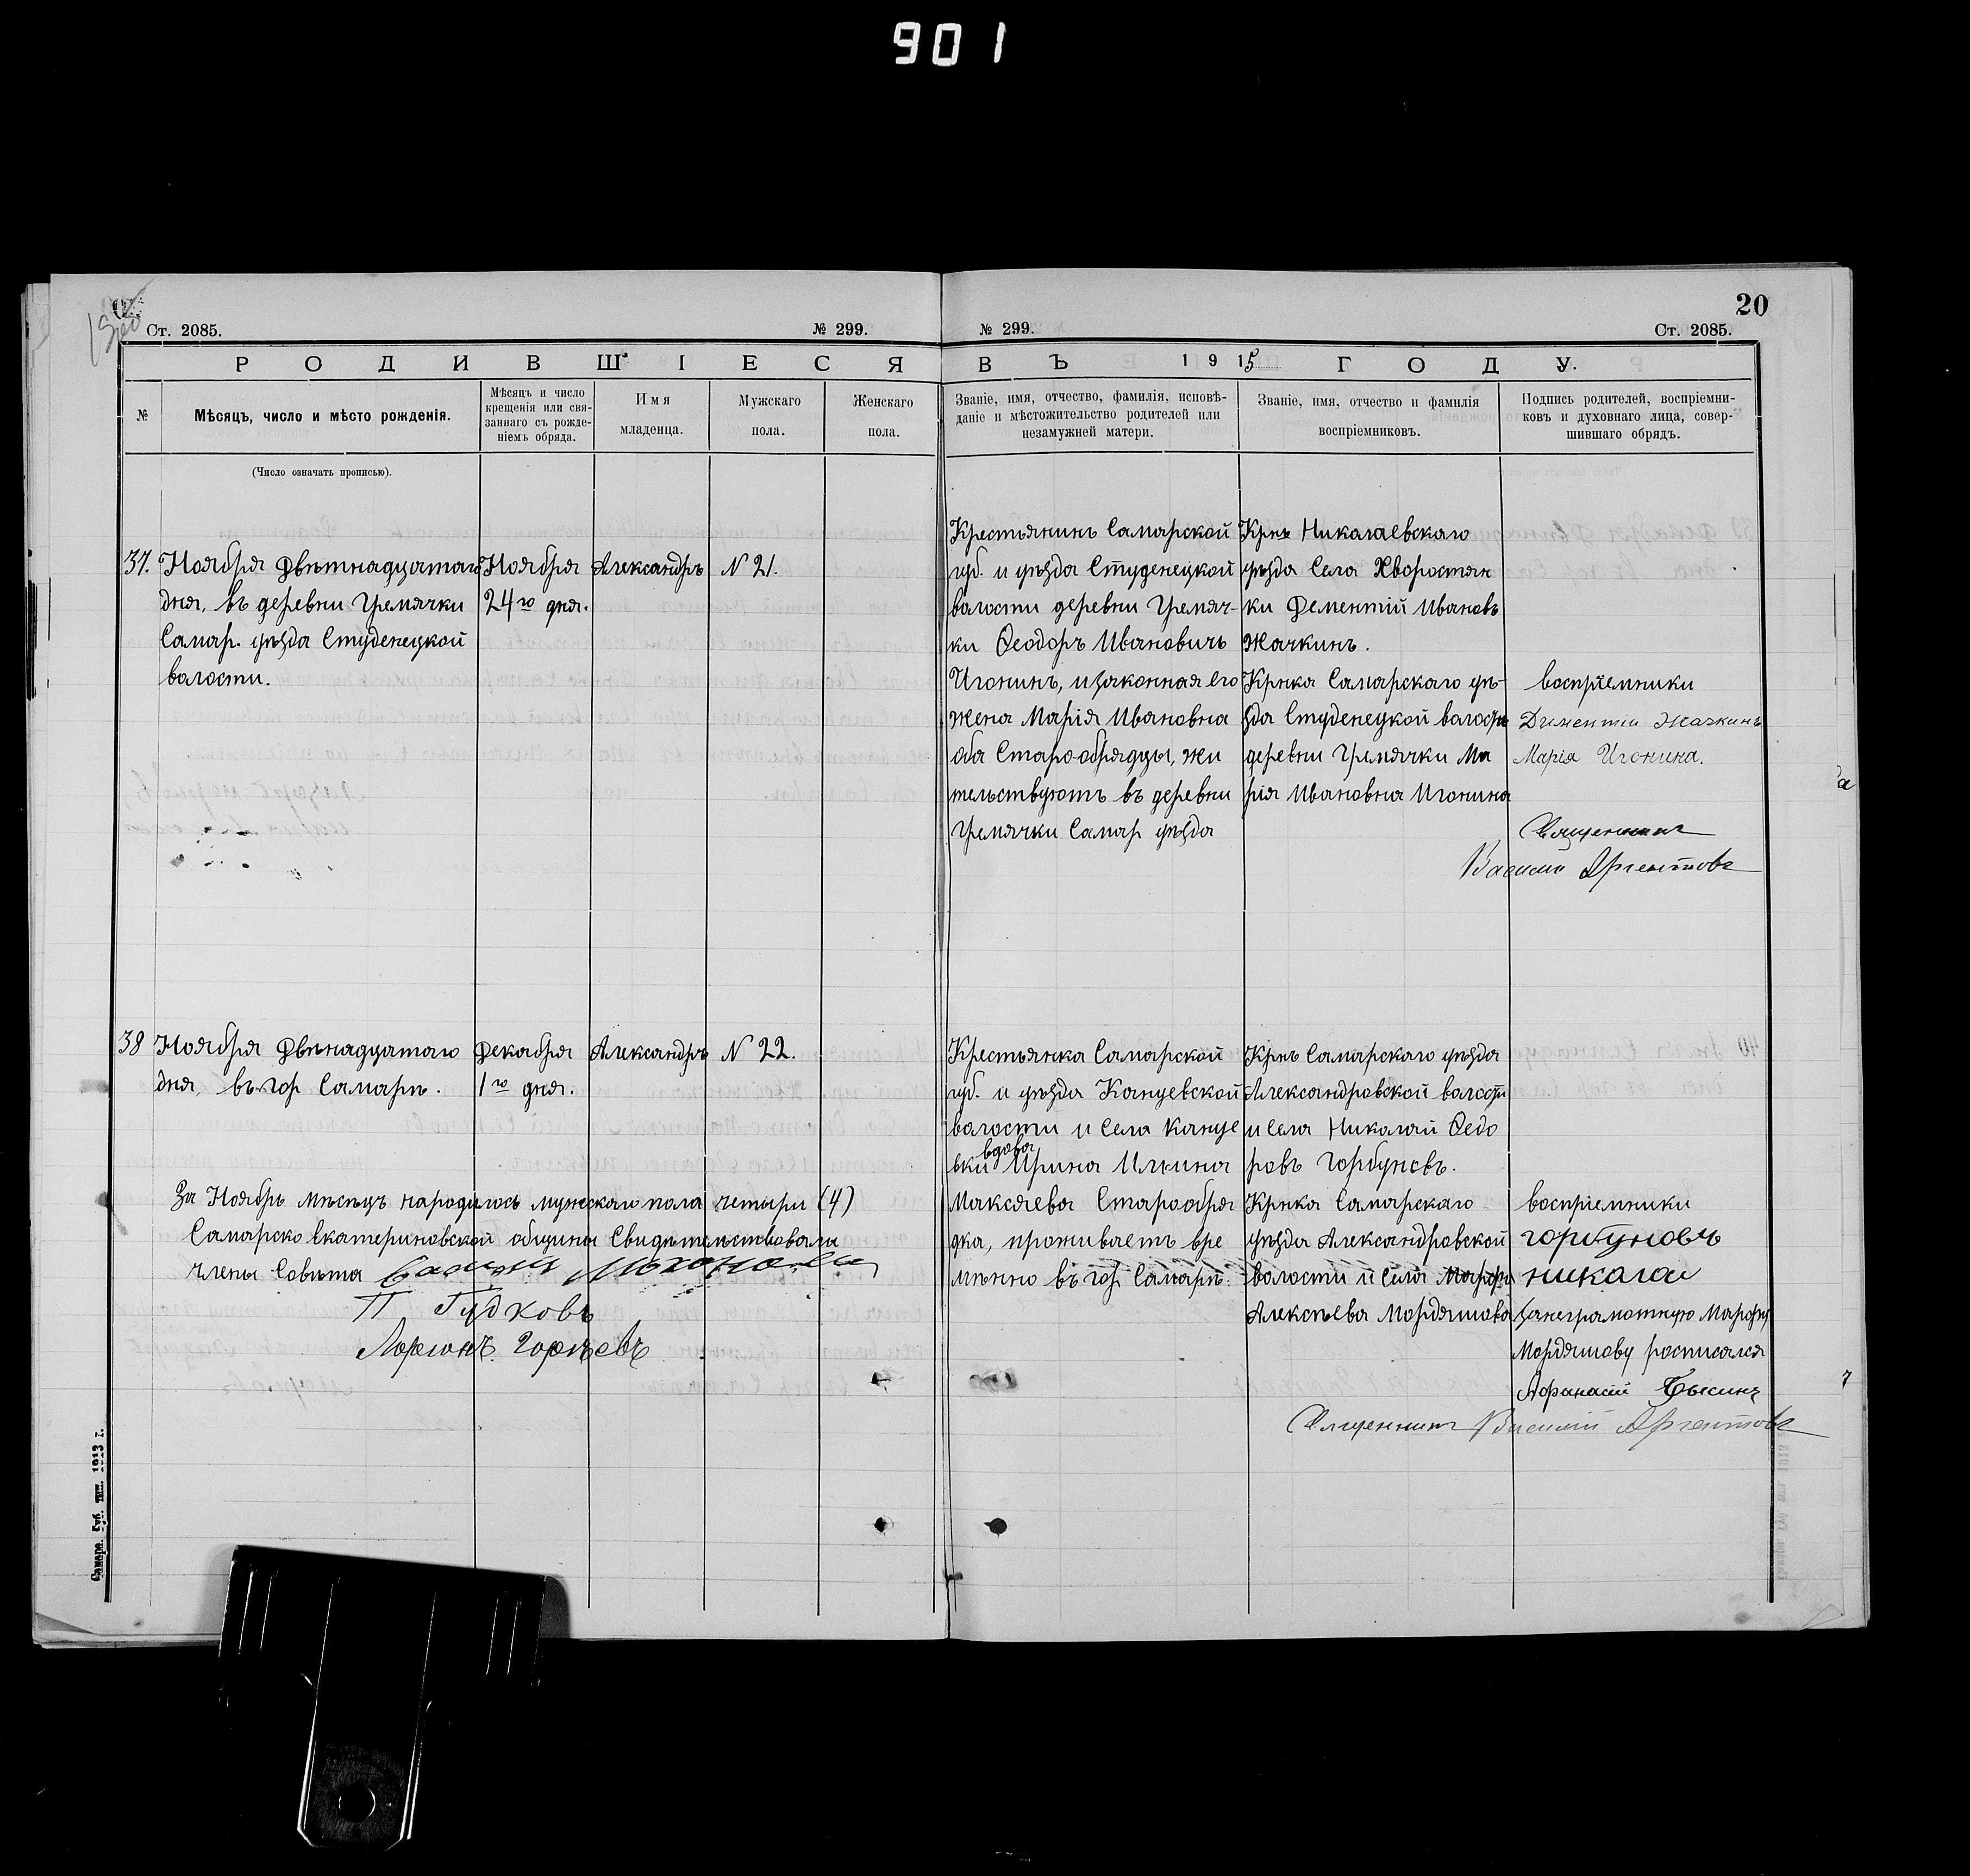 901
20
Ст. 2085.
№ 299.
№ 299.
Ст. 2085.
РОДИВШІЕСЯ ВЪ 1915 ГОДУ.
№
Мѣсяцъ, число и мѣсто рожденія.
(Число означать прописью).
Мѣсяцъ и число
крещенія или свя-
заннаго съ рожде-
ніемъ обряда.
Имя
младенца.
Мужскаго
пола.
Женскаго
пола.
Званіе, имя, отчество, фамилія, исповѣ-
даніе и мѣстожительство родителей или
незамужней матери.
Званіе, имя, отчество и фамилія
воспріемниковъ.
Подпись родителей, воспріемни-
ковъ и духовнаго лица, совер-
шившаго обрядъ.
37.
Ноября
дня, въ деревни Гремячки
Самар. уѣзда Студенецкой
волости.
Ноября
24го дня.
Александръ
N 21.
Крестьянинъ Самарской
губ. и уѣзда Студенецкой
волости деревни Гремяч-
ки Ѳеодоръ Ивановичъ
Игонинъ, и законная его
жена Марія Ивановна
оба Старо-обрядцы, жи
тельствуютъ въ деревни
Гремячки Самар уѣзда
Крнъ Николаевскаго
уѣзда Села Хворостян
ки Дементій Ивановъ
Жачкинъ.
Крнка Самарскаго уѣ-
зда Студенецкой волости
деревни Гремячки Ма
рія Ивановна Игонина
воспріемники
Дименти Жачкинъ
Марія Игонина.
Священникъ
Василій Аргентовъ
38
Ноября Двѣнадцатаго
дня, въ гор Самарѣ.
Декабря
1го дня.
Александръ
N 22.
Крестьянка Самарской
губ. и уѣзда Канцевской
волости и Села Канце
вдова
вки Ирина
Максяева Старообря
дка, проживаетъ вре
мѣнно въ гор Самарѣ
Крнъ Самарскаго уѣзда
Александровской волости
и Села Николай Ѳедо
ровъ Горбуновъ.
Крнка Самарскаго
уѣзда Александровской
волости и Села Марфа
Алексѣева Мордяшова
воспріемники
горбуновъ
николаи
за неграмотную Марфу
Мордяшову росписался
Афанасій
Священникъ Василій Аргентовъ
За Ноябрь мѣсяцъ народилось мужескаго пола четыри (4)
Самарско Екатериновской общины Свидѣтельствовали
члены Совѣта
П Гудковъ
Самара. Губ. тип. 1913 г.